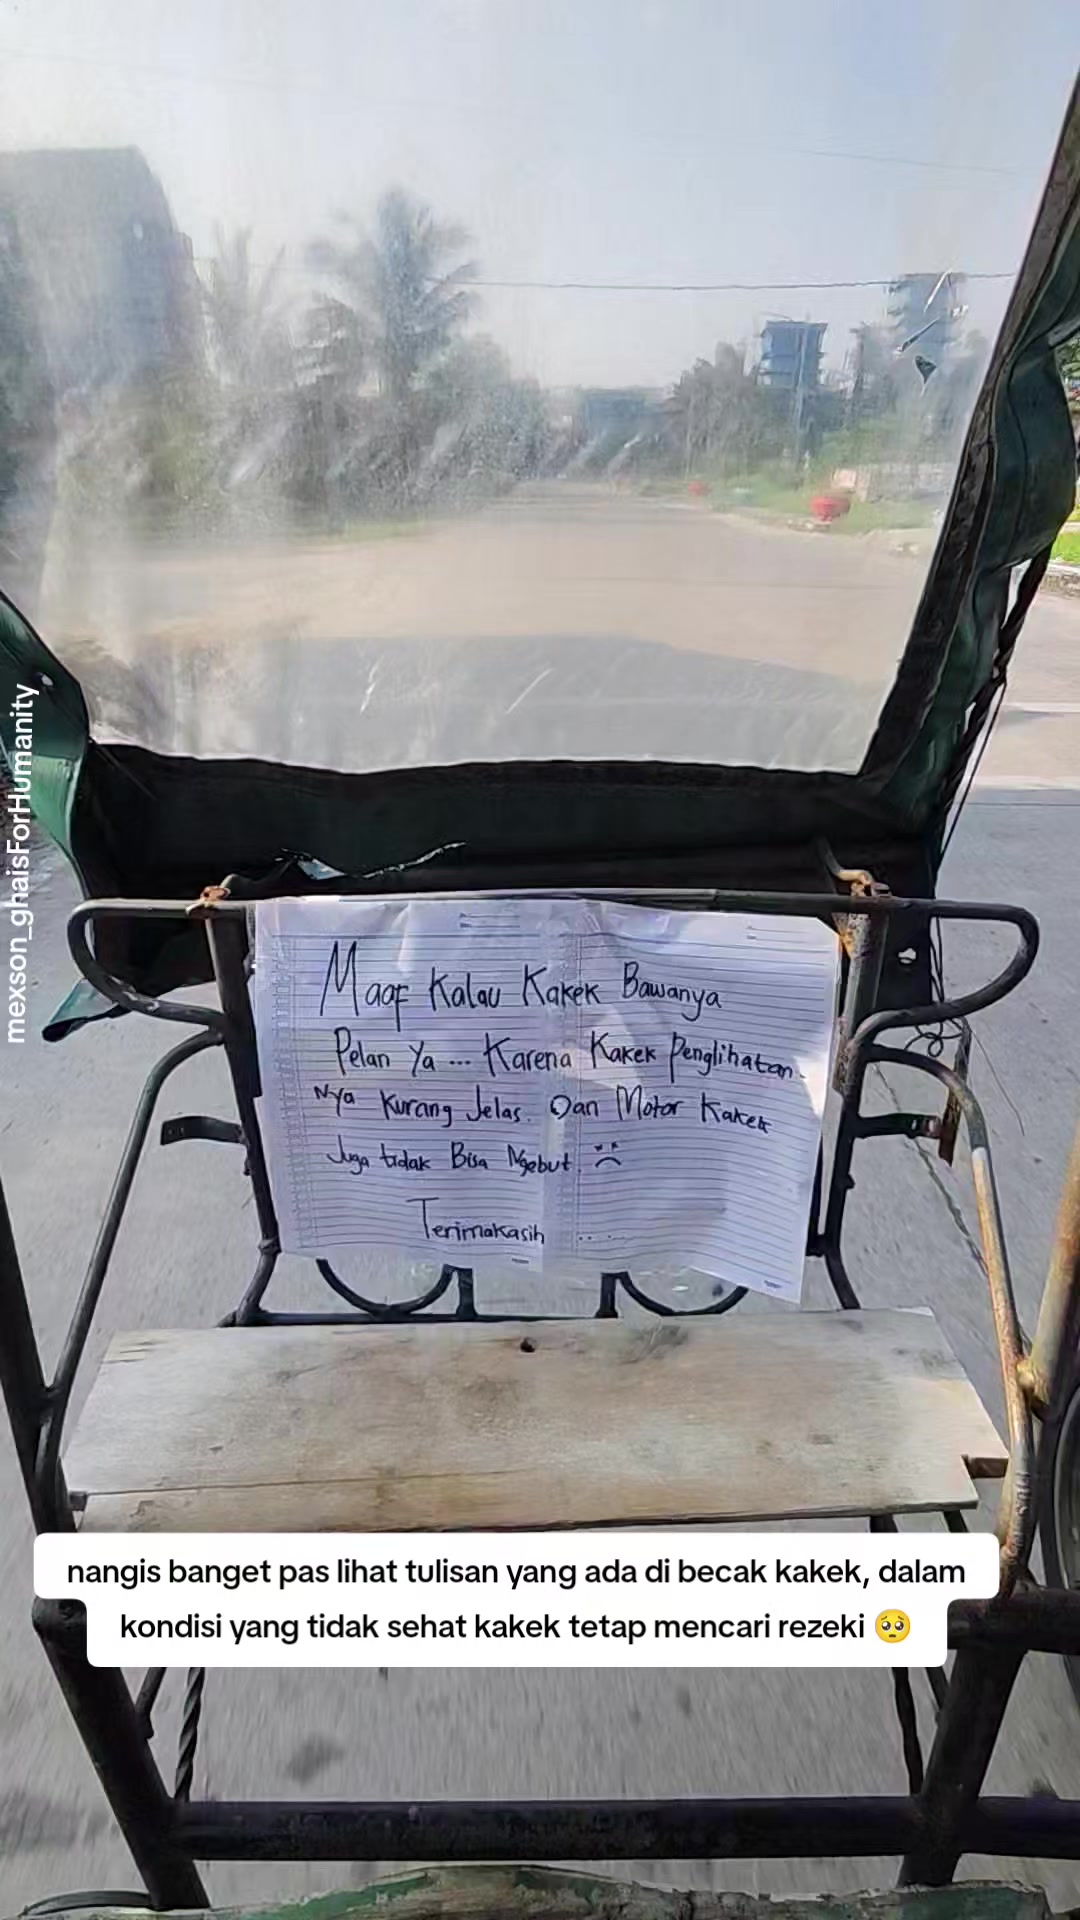 mexson_ghaisForHumanity
Maaf Kalau Kakek Bawanya
Pelan Ya ... Karena Kakek Penglihatan-
Nya Kurang Jelas. Dan Motor Kakek
Juga tidak Bisa Ngebut.
Terimakasih .....
nangis banget pas lihat tulisan yang ada di becak kakek, dalam
kondisi yang tidak sehat kakek tetap mencari rezeki 🥺